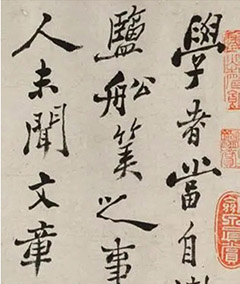 學者當自
鹽舩筴之事
人未聞文章